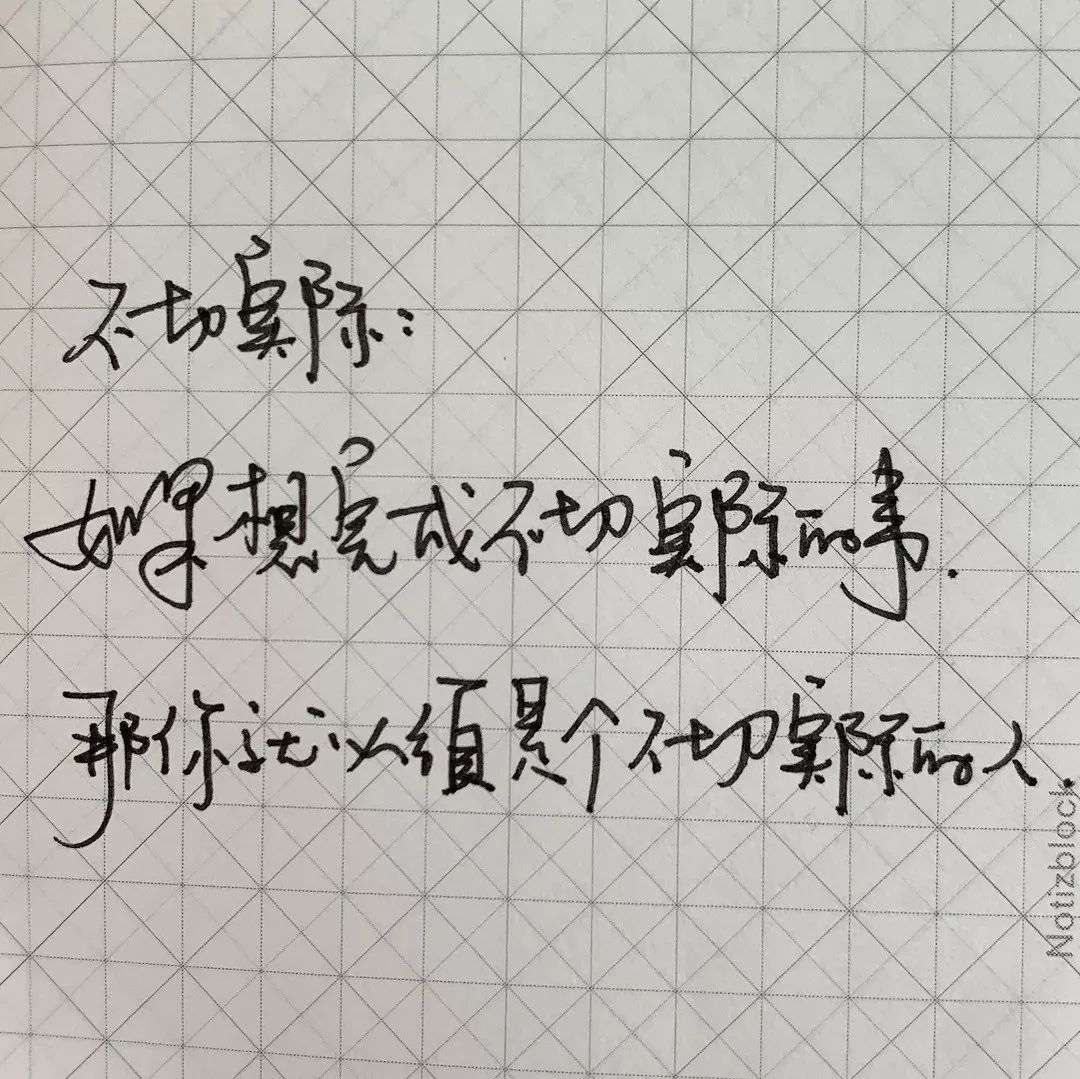 不切实际:
如果想完成不切实际的事.
那你就必须是个不切实际的人.
Notizblock